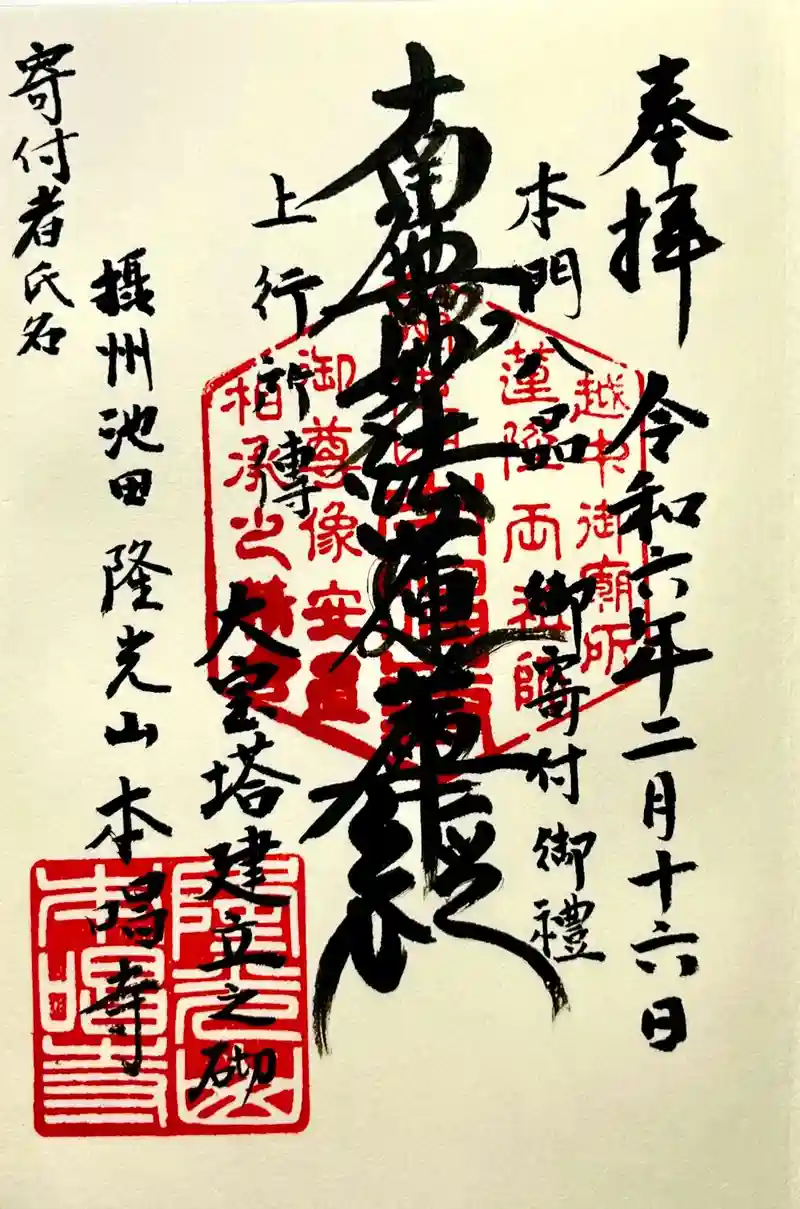 奉拝 令和六年二月十六日
本門八品 御寄付御禮
南無妙法蓮華経
上行所傳 大宝塔建立之砌
摂州池田 隆光山本唱寺
寄付者氏名
越中御廟所
蓮隆両祖師
御尊像安置
相承之
隆光山
本唱寺